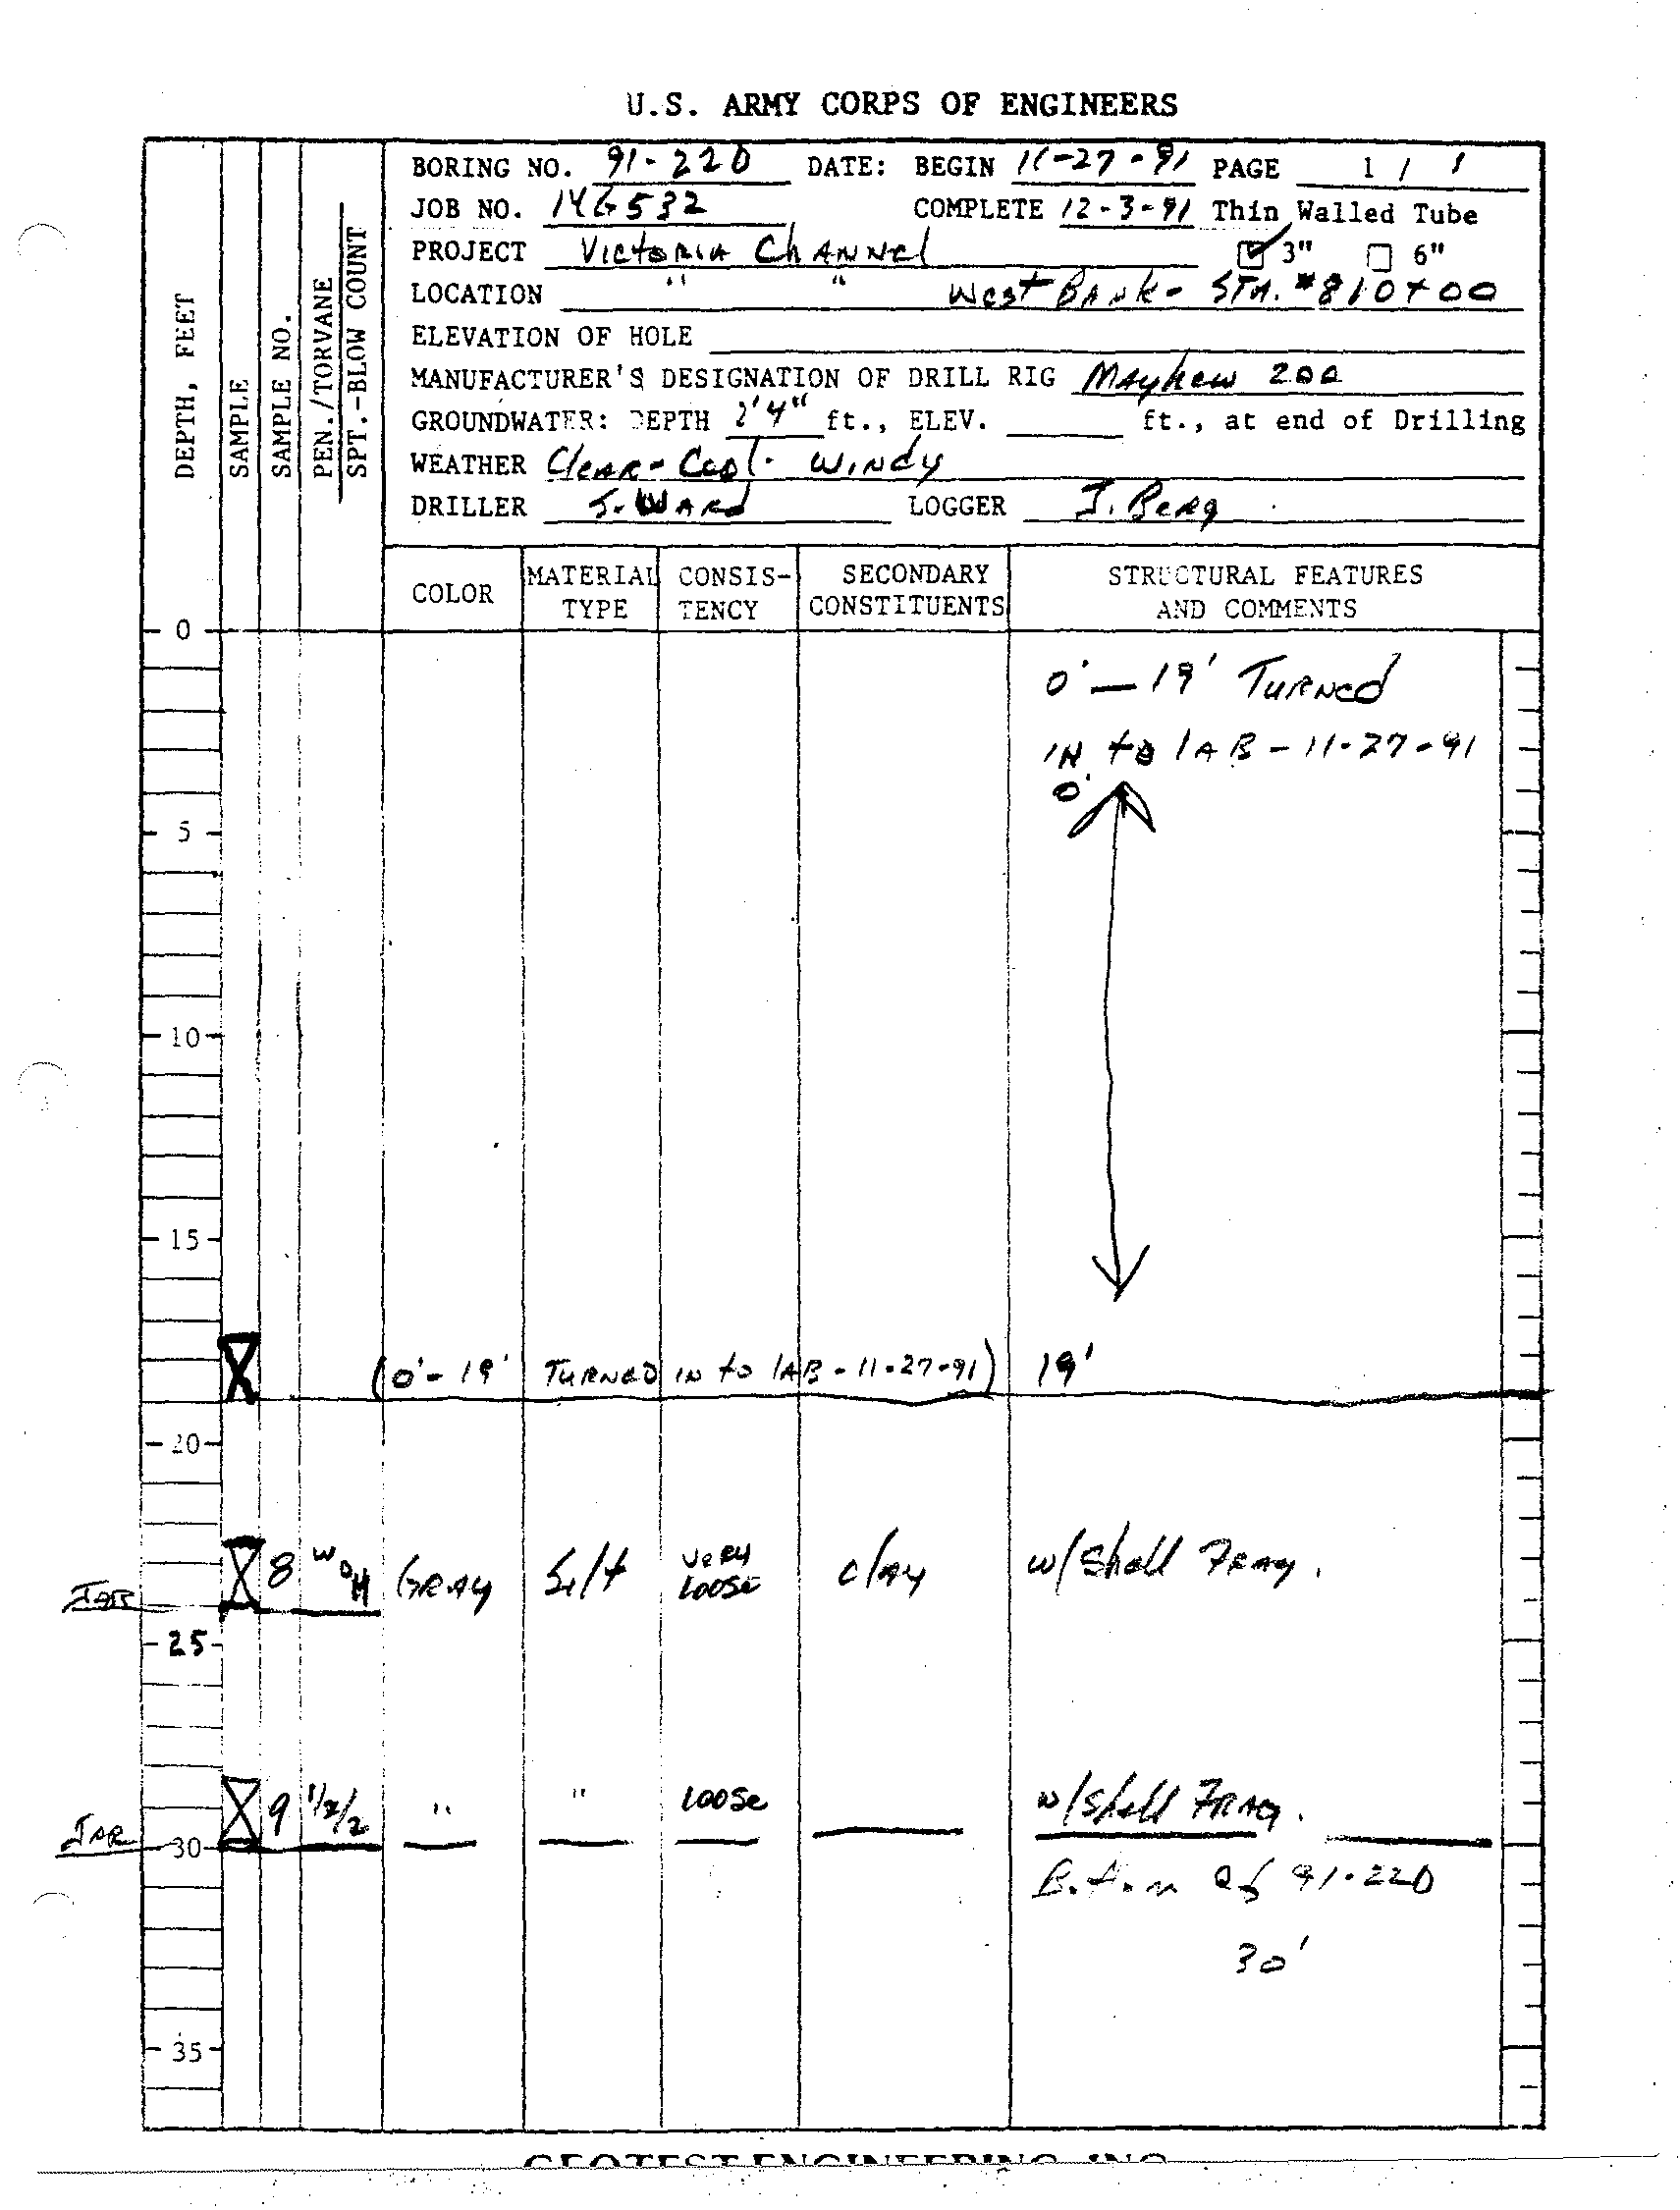 U.S. ARMY CORPS OF ENGINEERS
BORING NO. 91-220 DATE: BEGIN 11-27-91 PAGE 1 / 1
JOB NO. 14G532 COMPLETE 12-3-91 Thin Walled Tube
PROJECT Victoria Channel 3" 6"
LOCATION " " West Bank - STA. #810+00
ELEVATION OF HOLE
MANUFACTURER'S DESIGNATION OF DRILL RIG Mayhew 200
GROUNDWATER: DEPTH 2'4" ft., ELEV. ft., at end of Drilling
WEATHER Clear - Cool. Windy
DRILLER J. Ward LOGGER J. Berg
DEPTH, FEET
SAMPLE
SAMPLE NO.
PEN./TORVANE
SPT.-BLOW COUNT
COLOR MATERIAL TYPE CONSIS-TENCY SECONDARY CONSTITUENTS STRUCTURAL FEATURES AND COMMENTS
0
0' — 19' Turned
in to lab - 11-27-91
0'
5
10
15
(0' - 19' Turned in to lab - 11-27-91) 19'
20
JAR 8 WOH Gray Silt very loose clay w/ Shell Frag.
25
JAR 9 1/2/2 " " loose w/ Shell Frag.
30
Bottom of 91-220
30'
35
GEOTEST ENGINEERING, INC.